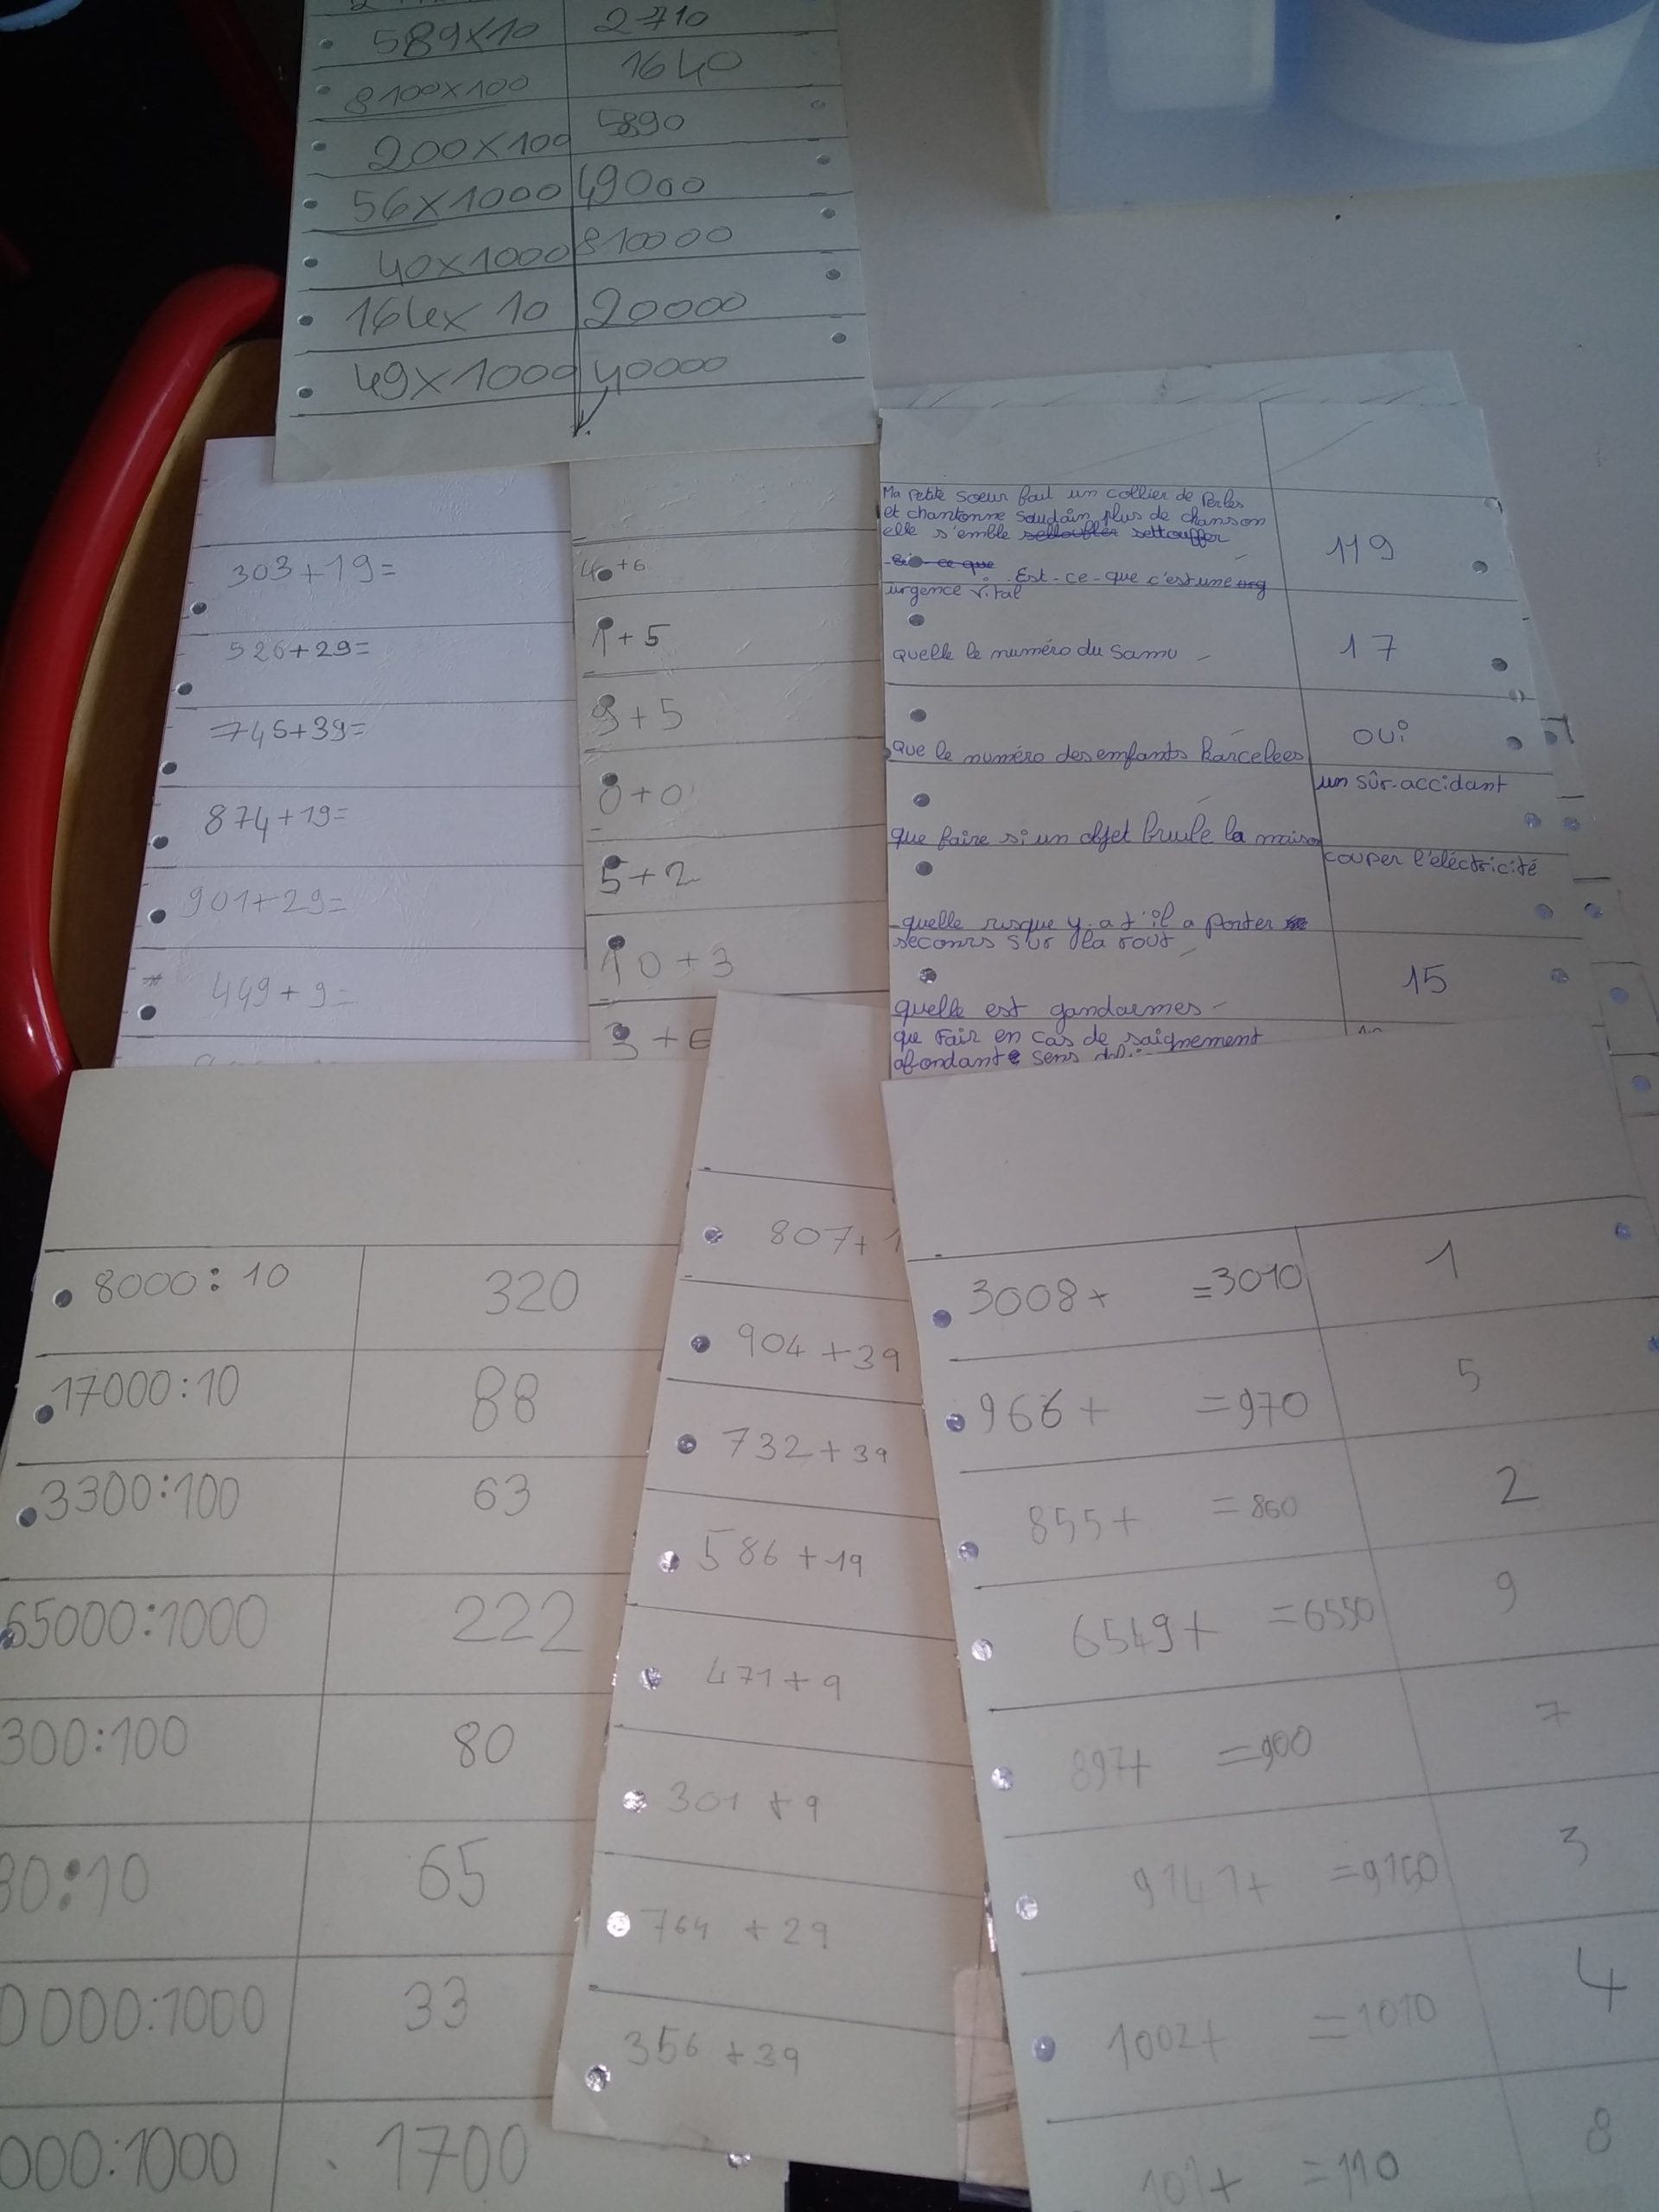 589×10 2710
8100×100 1640
200×100 5890
56×1000 49000
40×1000 810000
164× 10 20000
49×1000 40000
303+19=
526+29=
745+39=
874+19=
901+29=
449+9=
4+6
1+5
9+5
0+0
5+2
10+3
3+6
Ma petite soeur fait un collier de Perles
et chantonne soudain plus de chanson
elle s'emble settouffer
Est-ce-que c'est une
urgence vital
119
quelle le numéro du samu 17
que le numéro des enfants harcelees oui
que faire si un objet brule la maison un sûr-accidant
quelle risque y-a t'il a porter
secours sur la rout
couper l'eléctricité
quelle est gandarmes 15
que fair en cas de saignement
abondante sens
8000:10 320
17000:10 88
3300:100 63
65000:1000 222
300:100 80
30:10 65
0000:1000 33
000:1000 1700
807+1
904+39
732+39
586+19
471+9
301+9
764+29
356+39
3008+ =3010 1
966+ =970 5
855+ =860 2
6549+ =6550 9
897+ =900 7
9141+ =9150 3
1002+ =1010 4
101+ =110 8